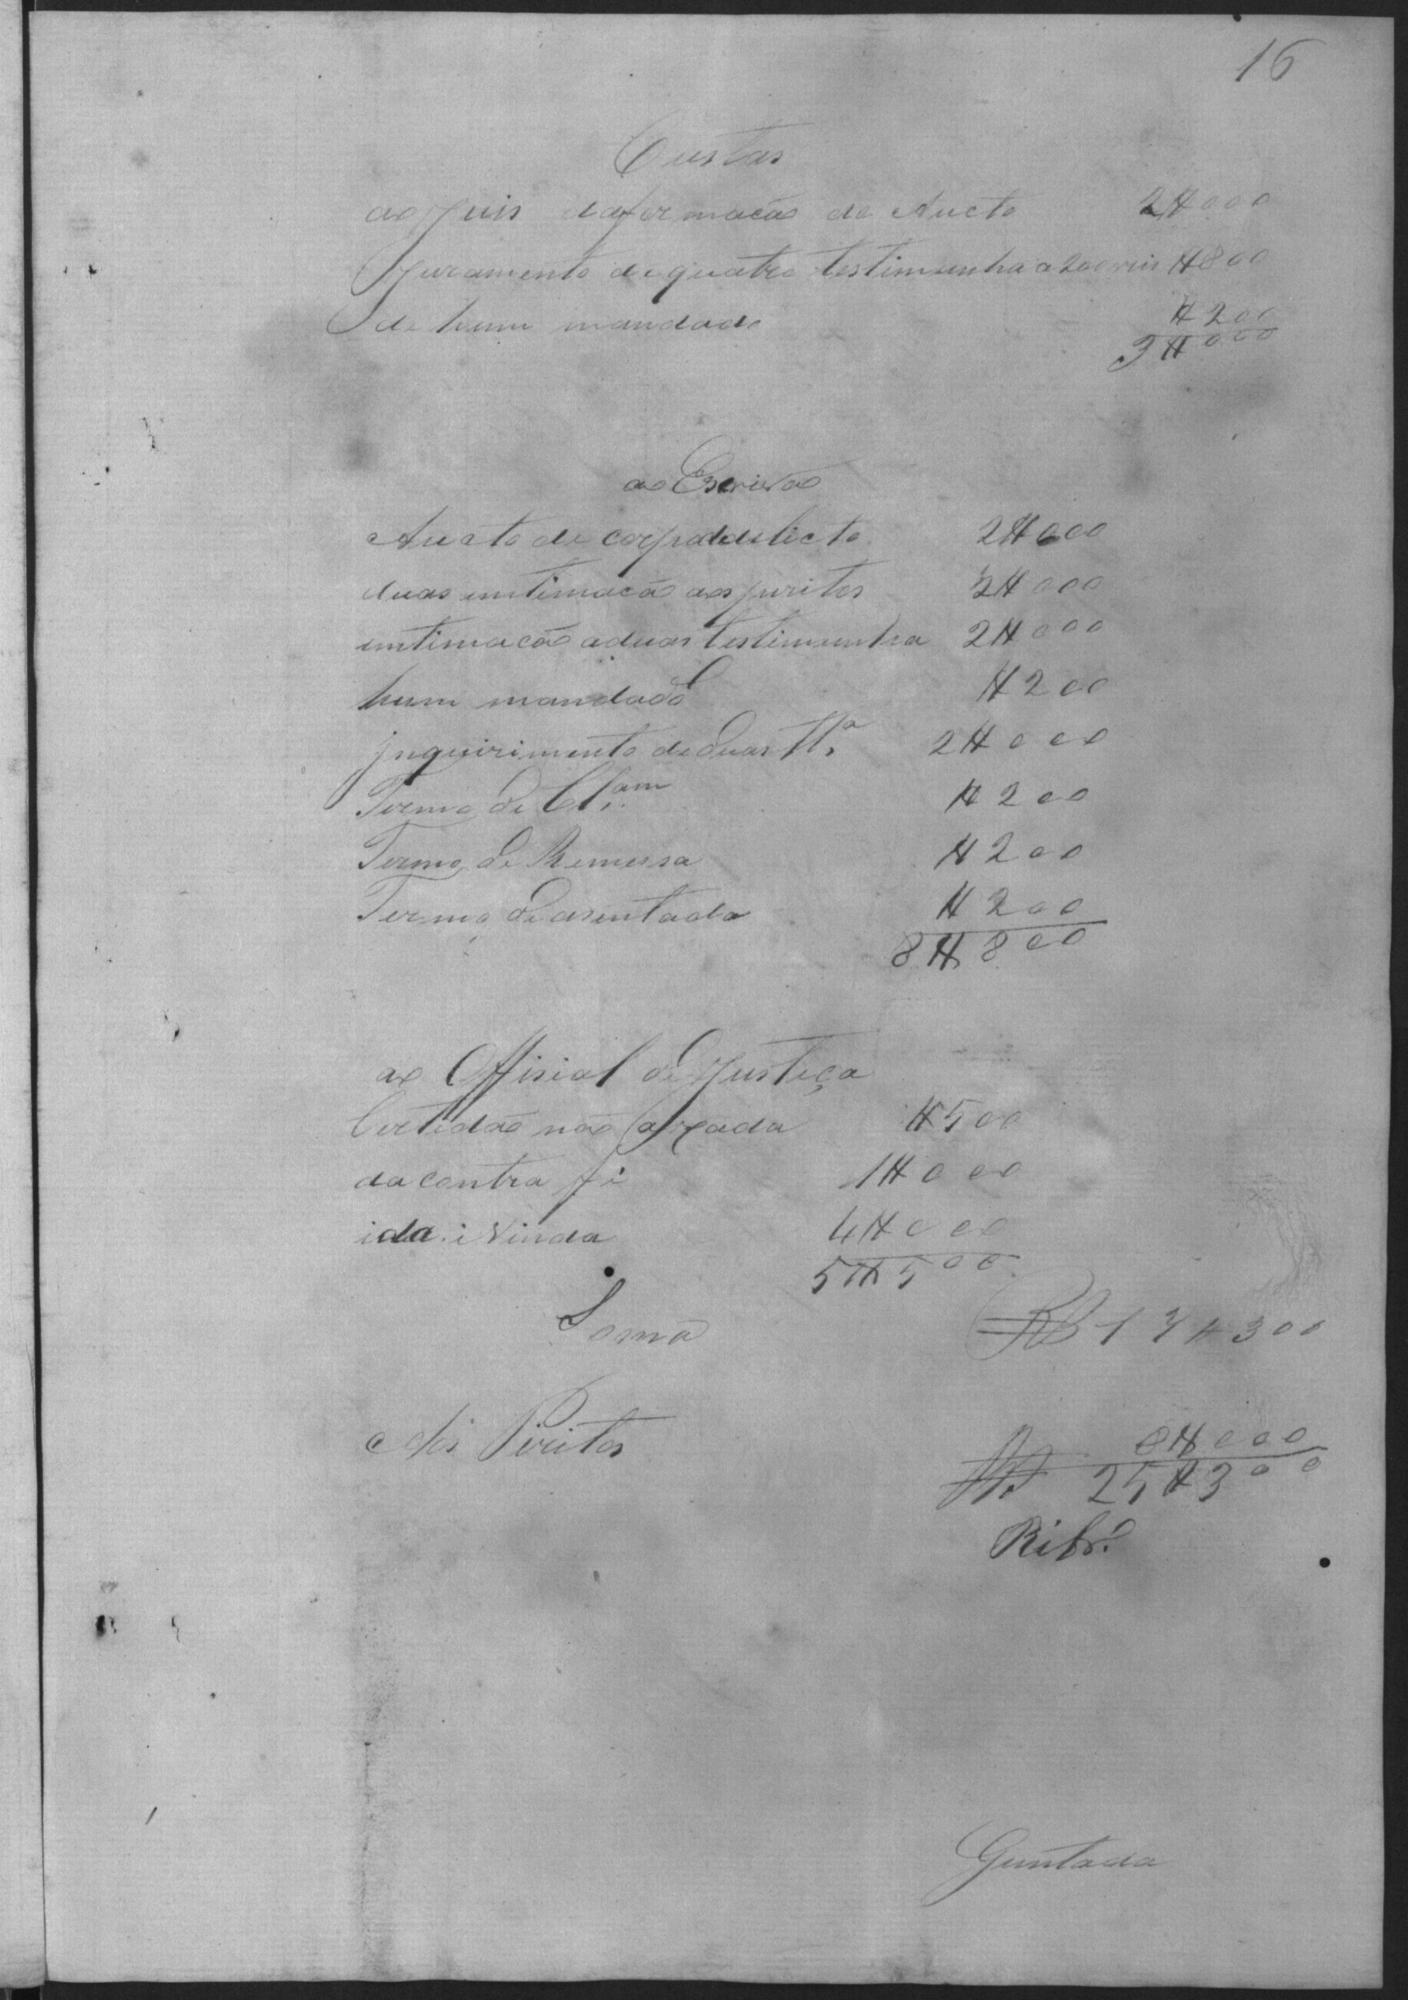 16
Custas
ao juis da formacão do Aucto 2#000
Juramento de quatro testimunha a 200 reis #800
de hum mandado #200
3#000
ao Escrivão
Aucto de corpo delicto 2#000
duas intimacão aos peritos 2#000
intimacão a duas testimunha 2#000
hum mandado #200
Inquirimento de duas tt.ª 2#000
Termo de Cls.am #200
Termo de Remessa #200
Termo de asentada #200
8#800
ao Offisial de Justiça
Certidão não #500
da contra fé 1#000
ida i Vinda 4#000
5#500
Soma 17#300
Aos Peritos 8#000
25#300
Ribr.º
Juntada